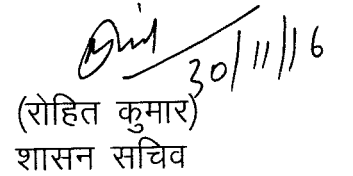 30/11/16
(रोहित कुमार)
शासन सचिव